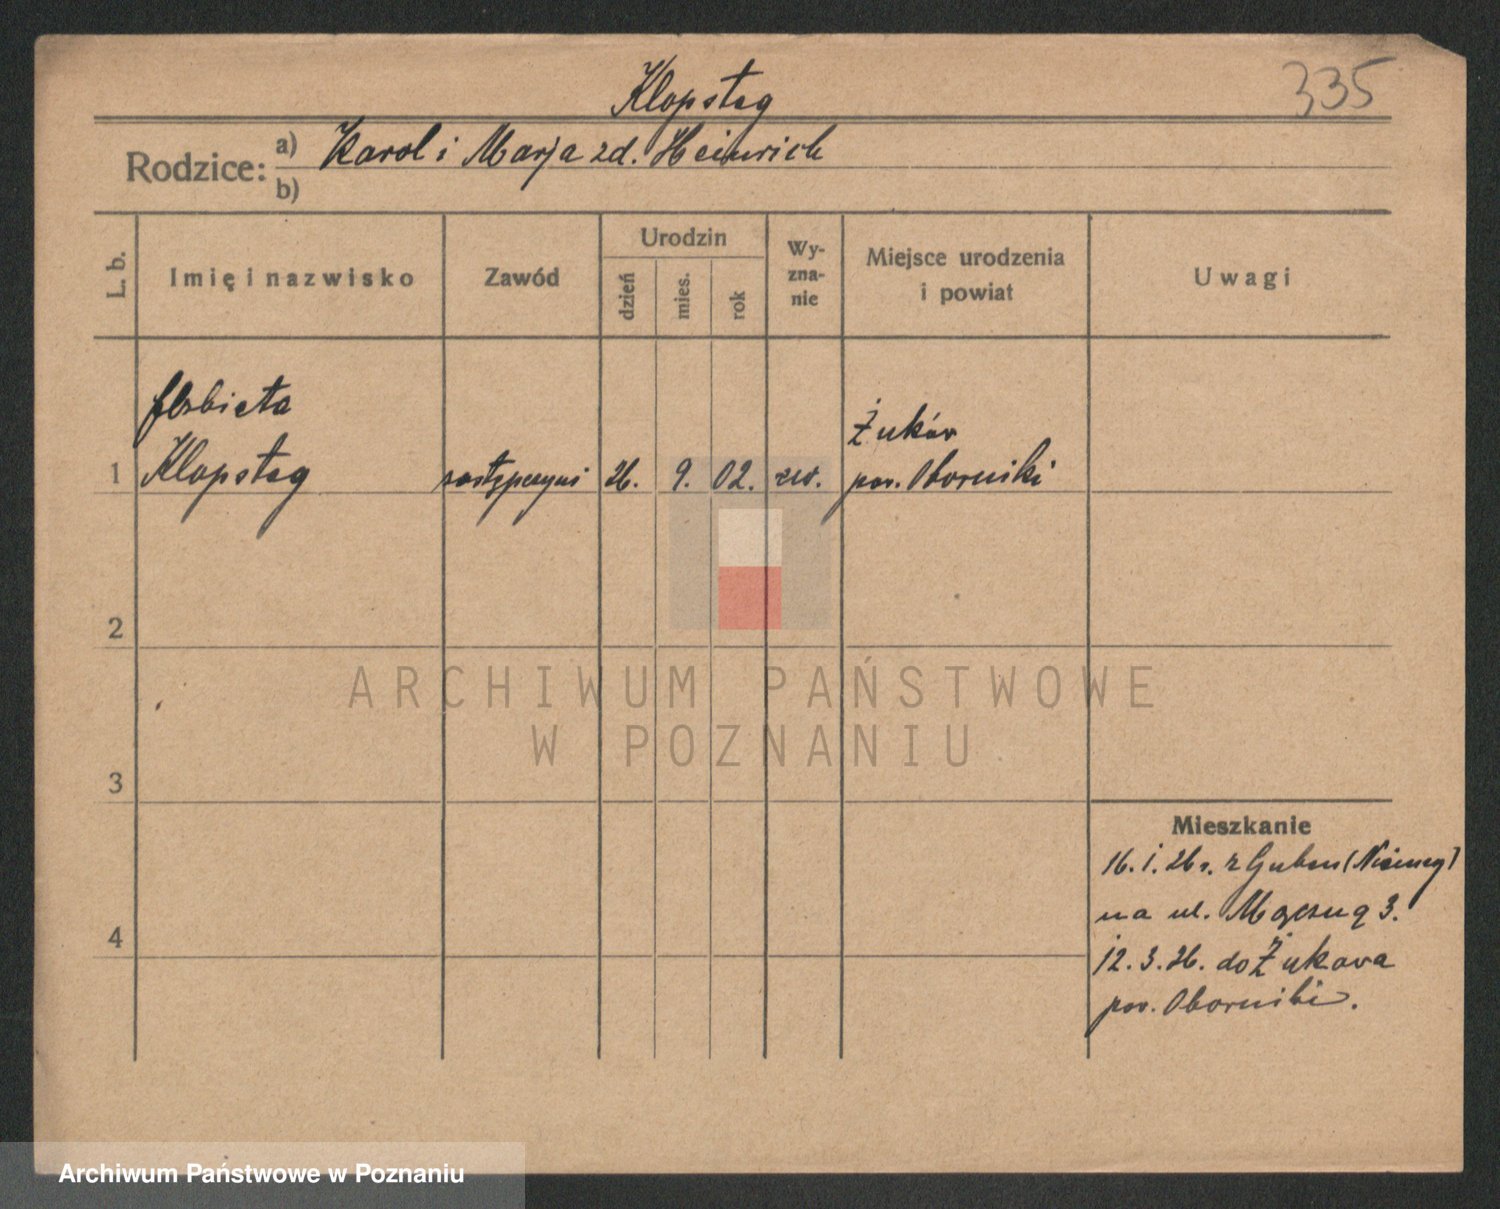 335
Klopsteg
Rodzice: a) Karol i Marja zd. Heinrich
b)
L. b. Imię i nazwisko Zawód Urodzin dzień mies. rok Wyznanie Miejsce urodzenia i powiat Uwagi
Elzbieta
Klopsteg
1 26. 9. 02. ew.
Żuków
pow. Oborniki
2
ARCHIWUM PAŃSTWOWE
W POZNANIU
3
4
Mieszkanie
16. 1. 26 r. z Guben (Niemcy)
na ul. Mączną 3.
12. 3. 26. do Żukowa
pow. Oborniki.
Archiwum Państwowe w Poznaniu